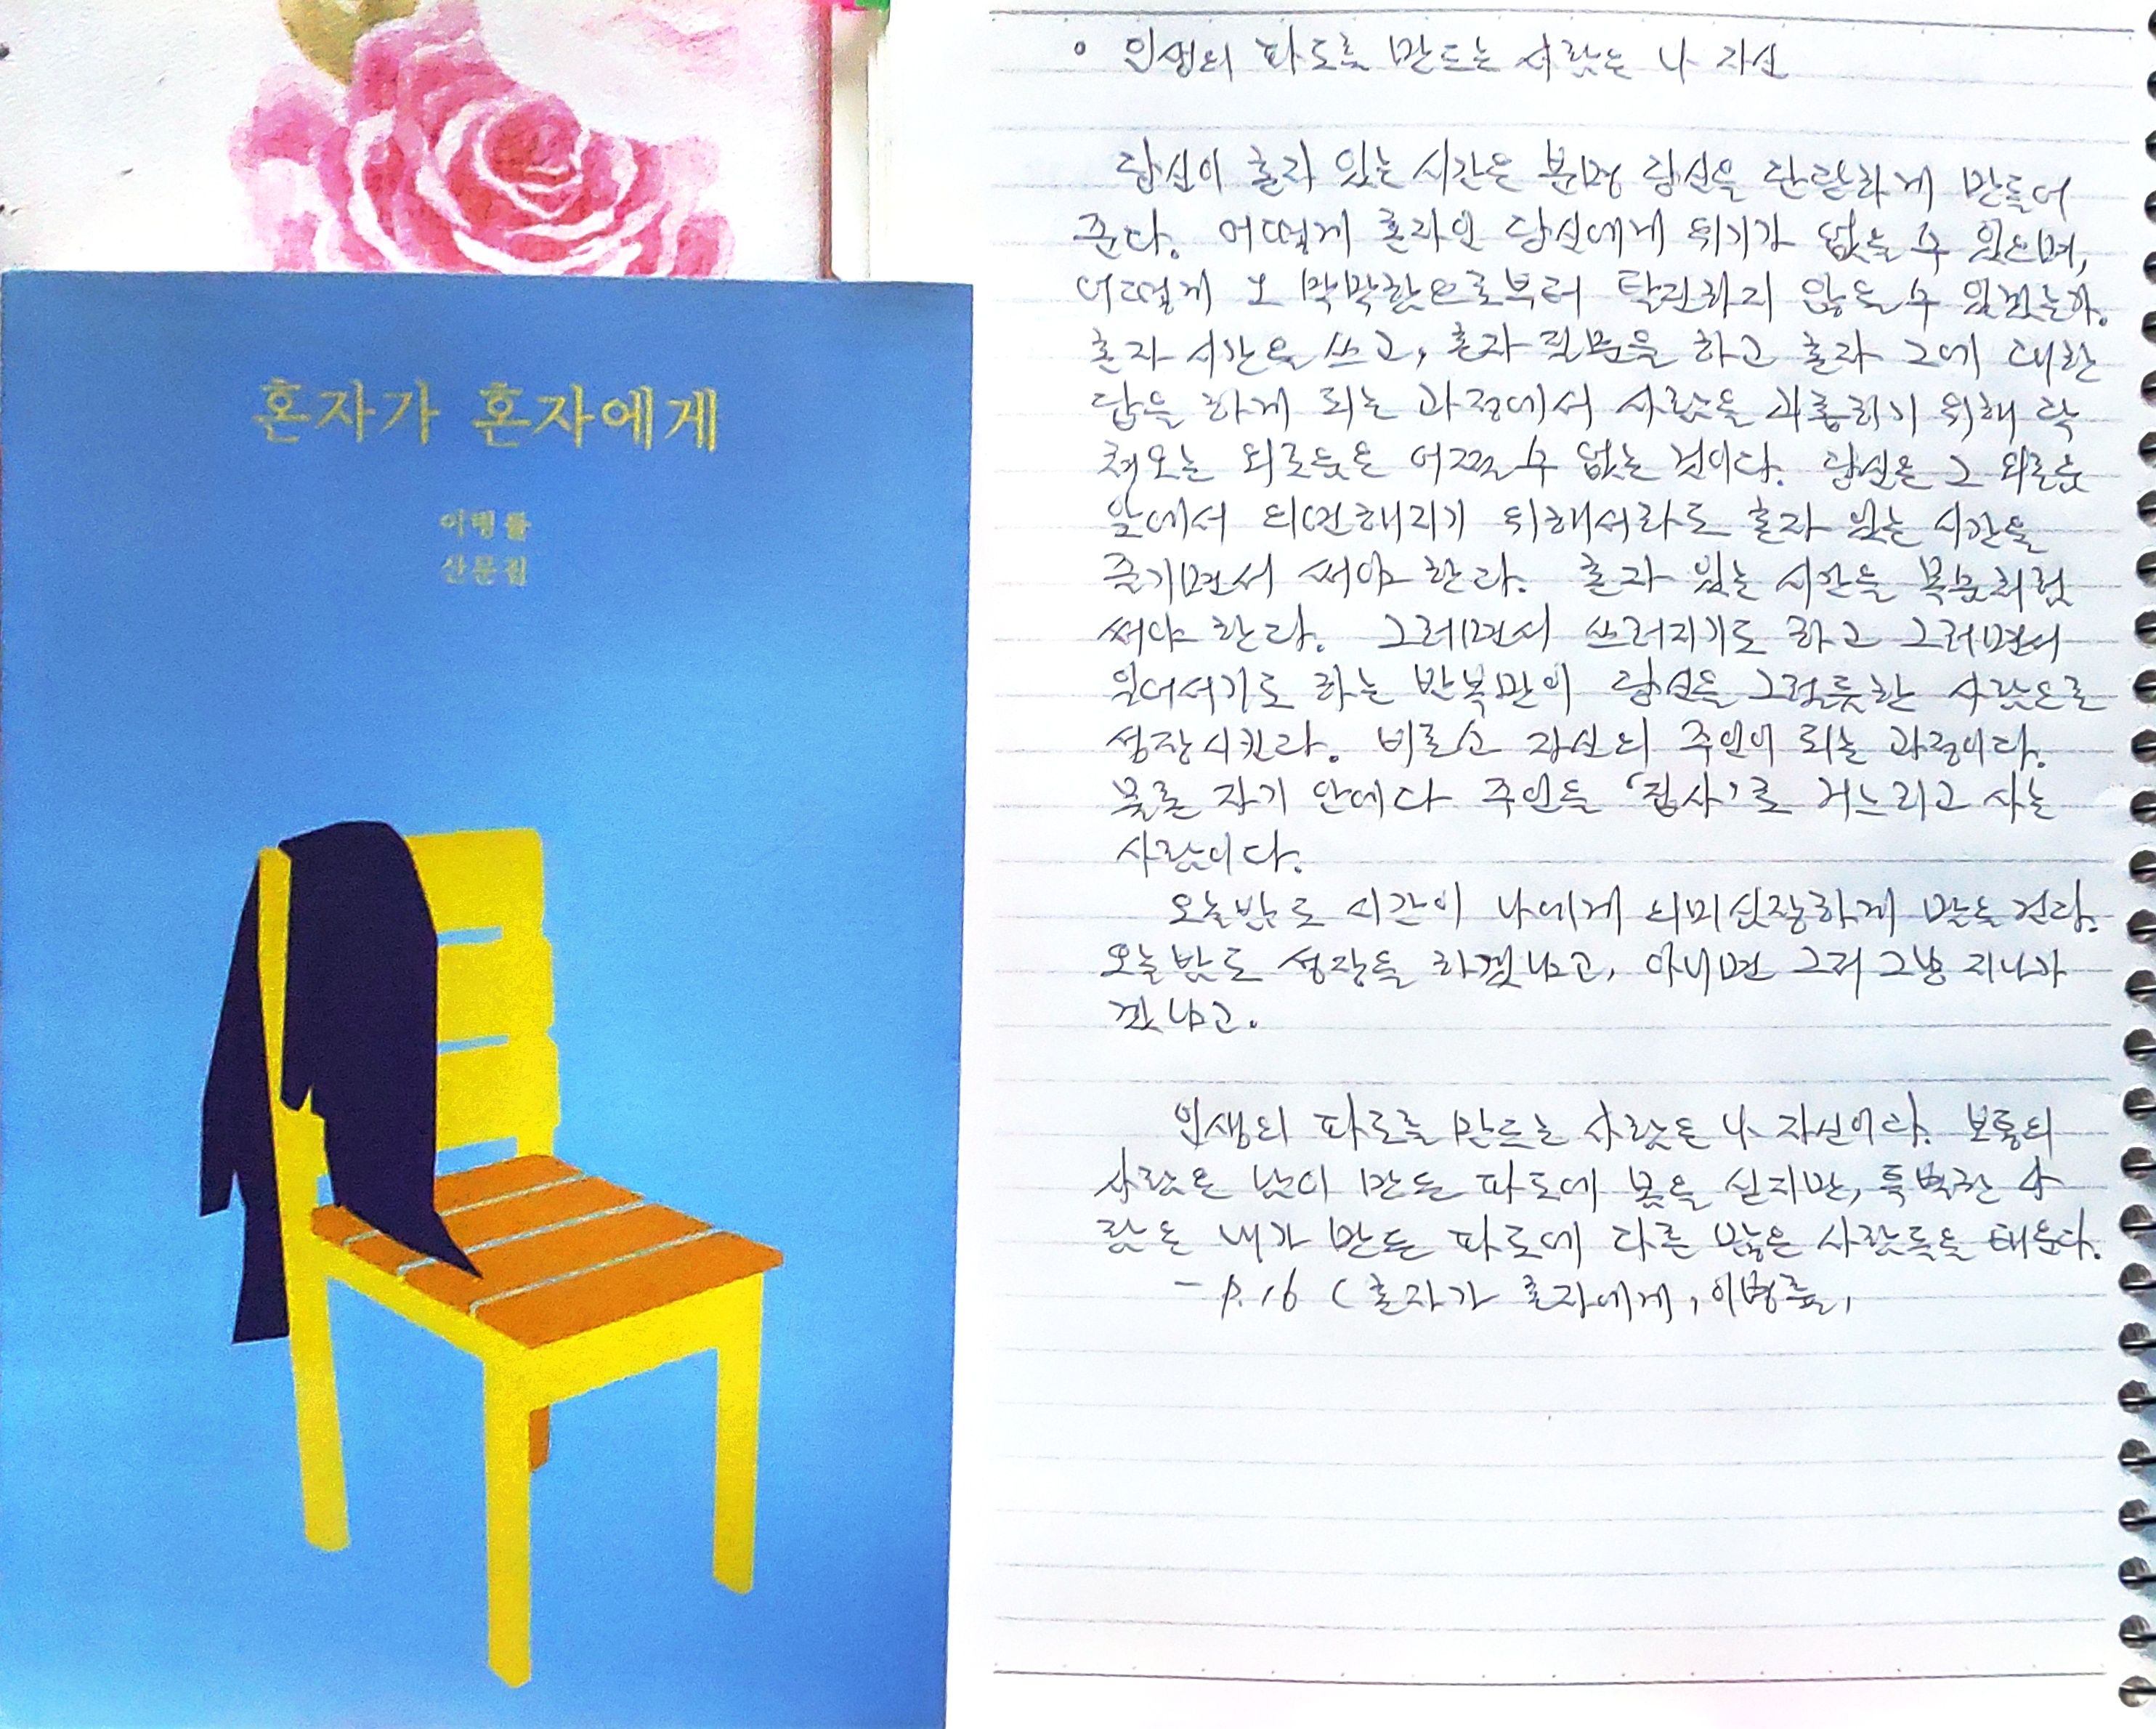 혼자가 혼자에게
이병률
산문집
• 인생의 파도를 만드는 사람은 나 자신
당신이 혼자 있는 시간은 분명 당신을 단단하게 만들어
준다. 어떻게 혼자인 당신에게 위기가 없을 수 있으며,
어떻게 그 막막함으로부터 탈진하지 않을 수 있겠는가.
혼자 시간을 쓰고, 혼자 질문을 하고 혼자 그에 대한
답을 하게 되는 과정에서 사람을 괴롭히기 위해 닥
쳐오는 외로움은 어쩔 수 없는 것이다. 당신은 그 외로움
앞에서 의연해지기 위해서라도 혼자 있는 시간을
즐기면서 써야 한다. 혼자 있는 시간을 목숨처럼
써야 한다. 그러면서 쓰러지기도 하고 그러면서
일어서기도 하는 반복만이 당신을 그럴듯한 사람으로
성장시킨다. 비로소 자신의 주인이 되는 과정이다.
물론 자기 안에다 주인을 '집사'로 거느리고 사는
사람이다.
오늘밤도 시간이 나에게 의미심장하게 말을 건다.
오늘밤도 성장을 하겠냐고, 아니면 그저 그냥 지나가
겠냐고.
인생의 파도를 만드는 사람은 나 자신이다. 보통의
사람은 남이 만든 파도에 몸을 싣지만, 특별한 사
람은 내가 만든 파도에 다른 많은 사람들을 태운다.
- p.16 ( 혼자가 혼자에게, 이병률,